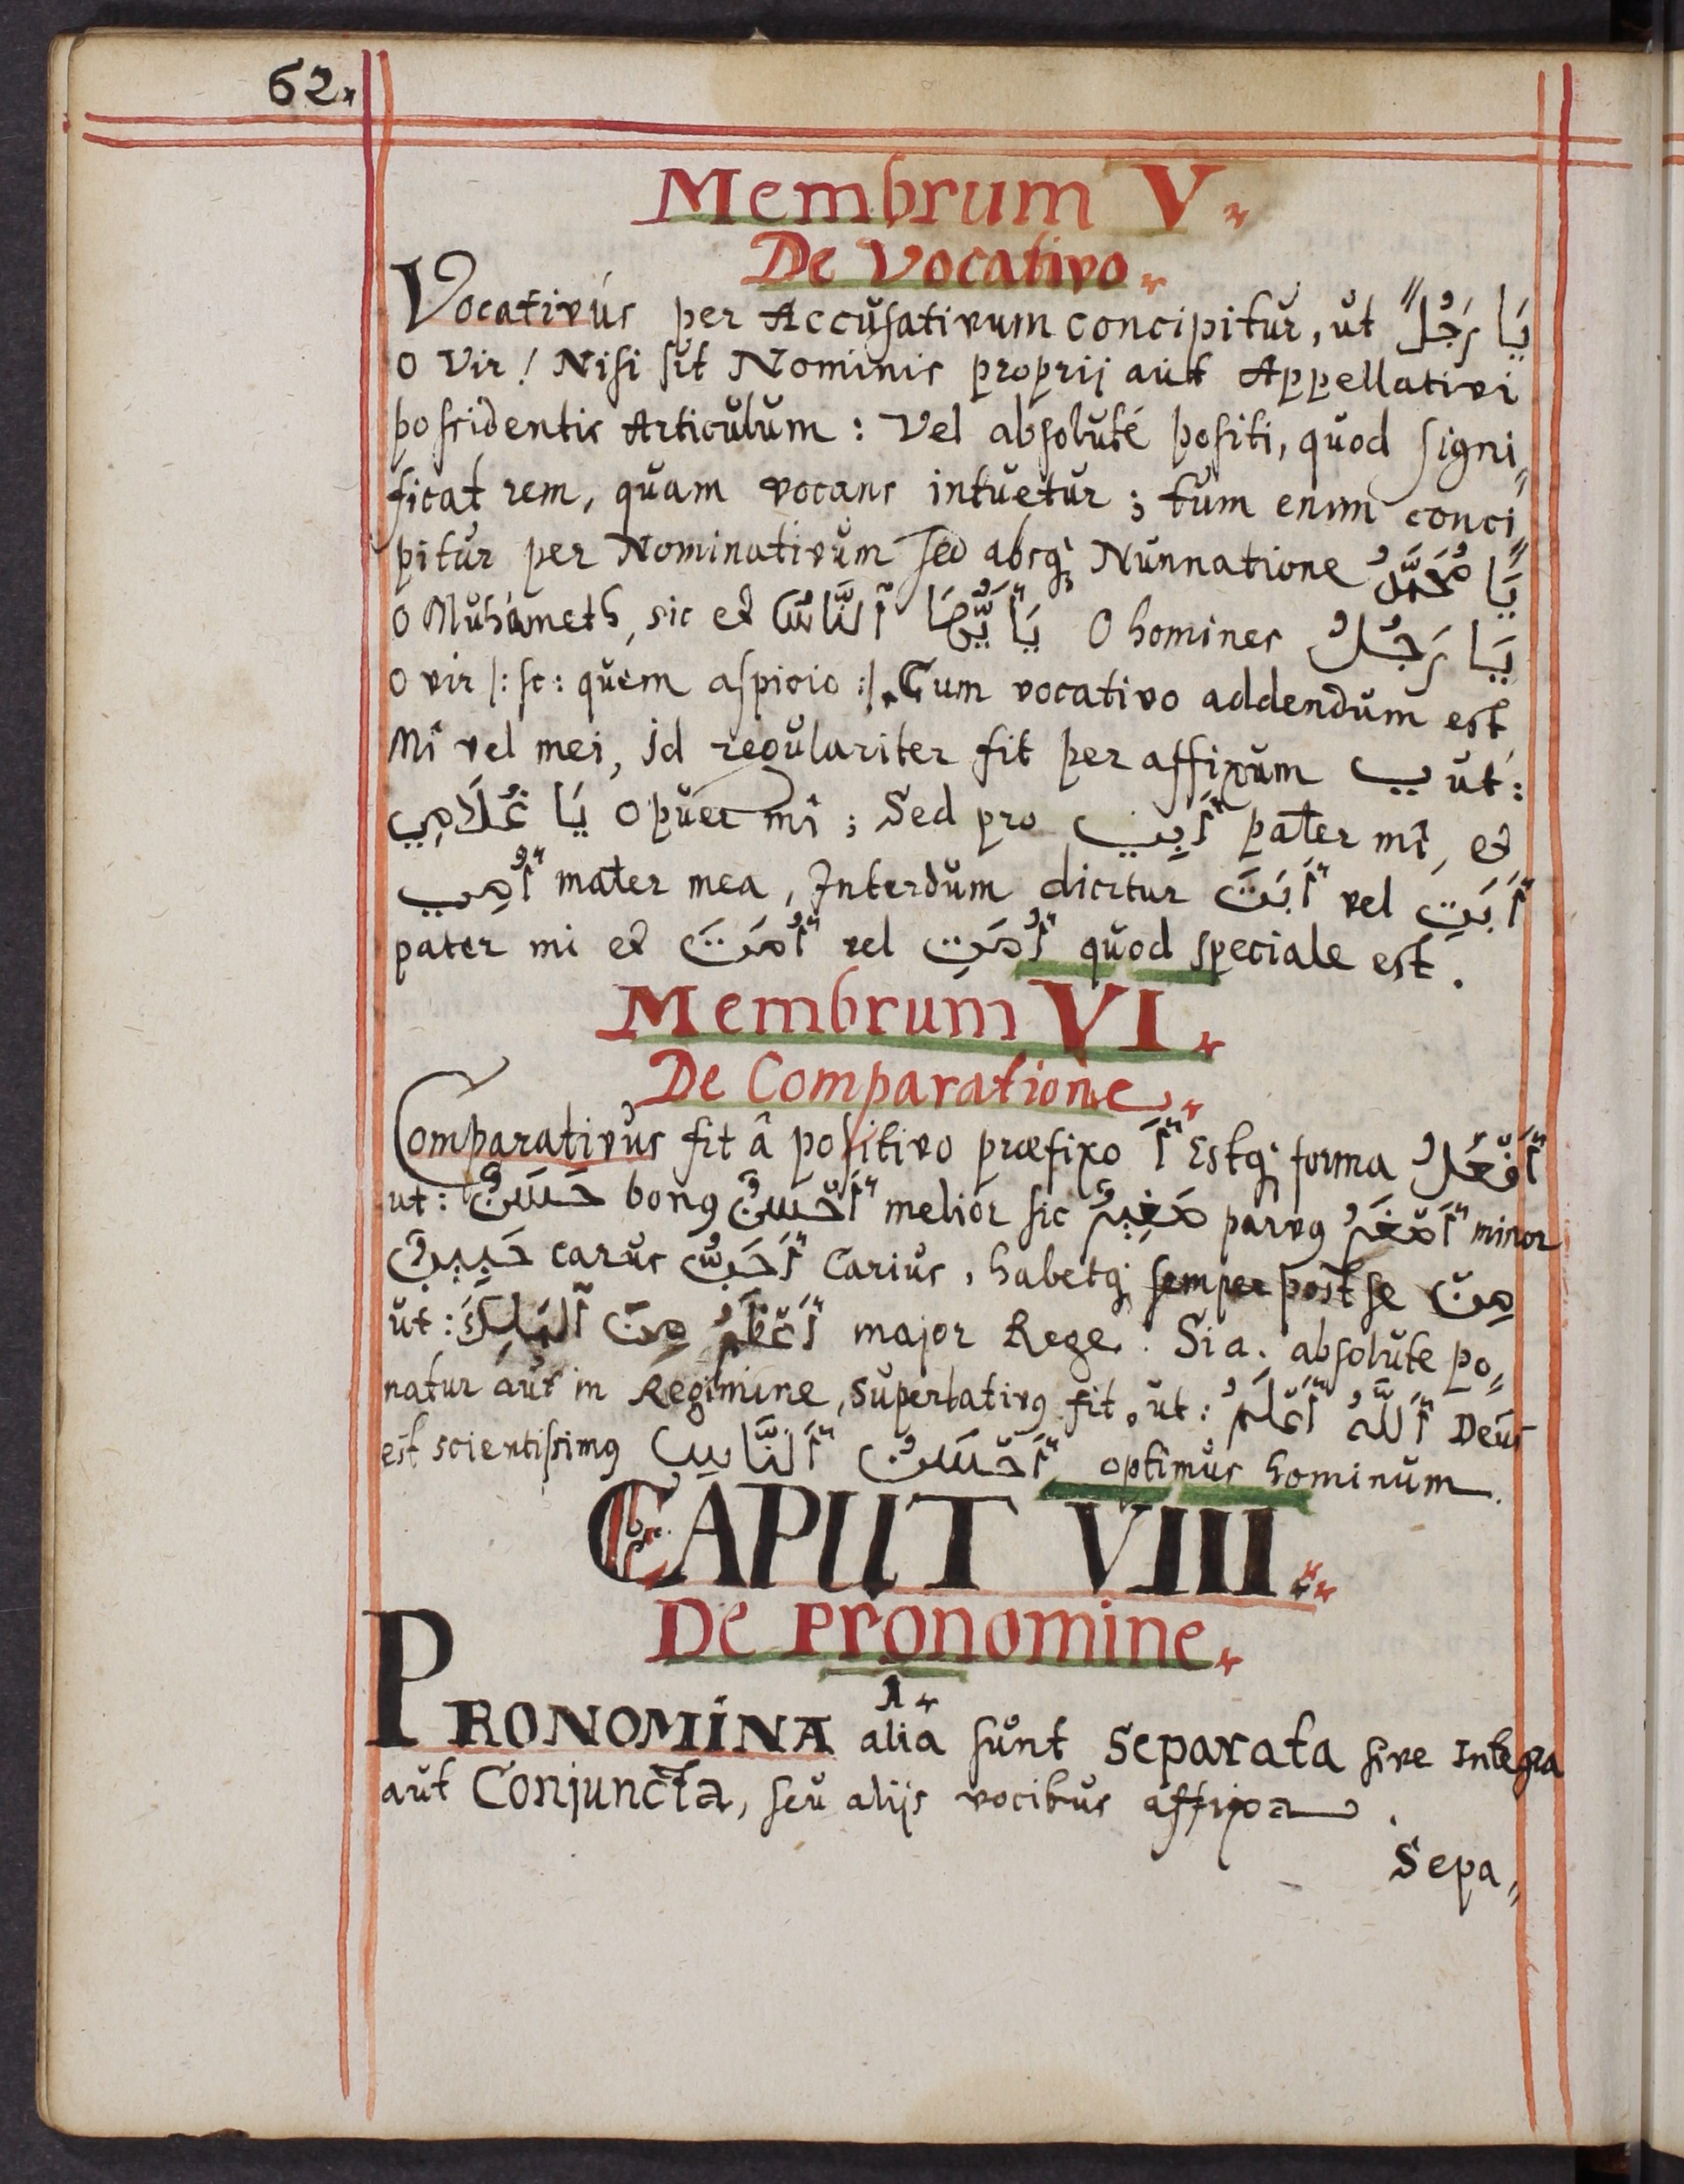 62.
Membrum V.
De Vocativo.
Vocativus per Accusativum concipitur, ut يَا رَجُلاً
O Vir! Nisi sit Nominis proprij aut Appellativi
possidentis Articulum: Vel absoluté positi, quod signi„
ficat rem, quam vocans intuetur; tum enim conci„
pitur per Nominativum sed absq; Nunnatione يَا مُحَمَّدُ
O Muhameth, sic et يَا أَيُّهَا ٱلنَّاسُ O homines يَا رَجُلُ
O vir |: sc: quem aspicio :|. Cum vocativo addendum est
Mi vel mei, id regulariter fit per affixum ي ut:
يَا غُلَامِي O puer mi; Sed pro أَبِي pater mi, et
أُمِي mater mea, Interdum dicitur أَبَتَ vel أَبَتِ
pater mi et أُمَتَ vel أُمَتِ quod speciale est.
Membrum VI.
De Comparatione.
Comparativus fit â positivo præfixo أَ Estq; forma أَفْعَلُ
ut: حَسَنٌ bonus أَحْسَنُ melior sic صَغِيرٌ parvus أَصْغَرُ minor
حَبِيبٌ carus أَحَبُّ Carius, habetq; semper post se مِنْ
ut: أَعْظَمُ مِنَ ٱلْمَلِكِ major Rege. Si a. absolute po„
natur aut in Regimine, Superlativus fit, ut: أَللَّهُ أَعْلَمُ Deus
est scientissimus أَحْسَنُ أَلنَّاسِ optimus hominum.
CAPUT VIII.
De Pronomine.
1.
PRONOMINA alia sunt Separata sive Integra
aut Conjuncta, seu alijs vocibus affixa.
Sepa„